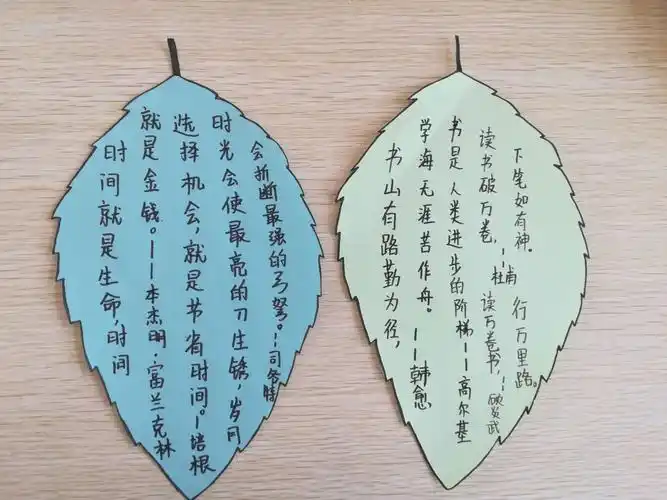 时间就是生命,时间
就是金钱。——本杰明·富兰克林
选择机会,就是节省时间。——培根
时光会使最亮的刀生锈,岁月
会折断最强的弓弩。——司各特
书山有路勤为径,
学海无涯苦作舟。——韩愈
书是人类进步的阶梯——高尔基
读书破万卷,
下笔如有神。
——杜甫
读万卷书,
行万里路。
——顾炎武